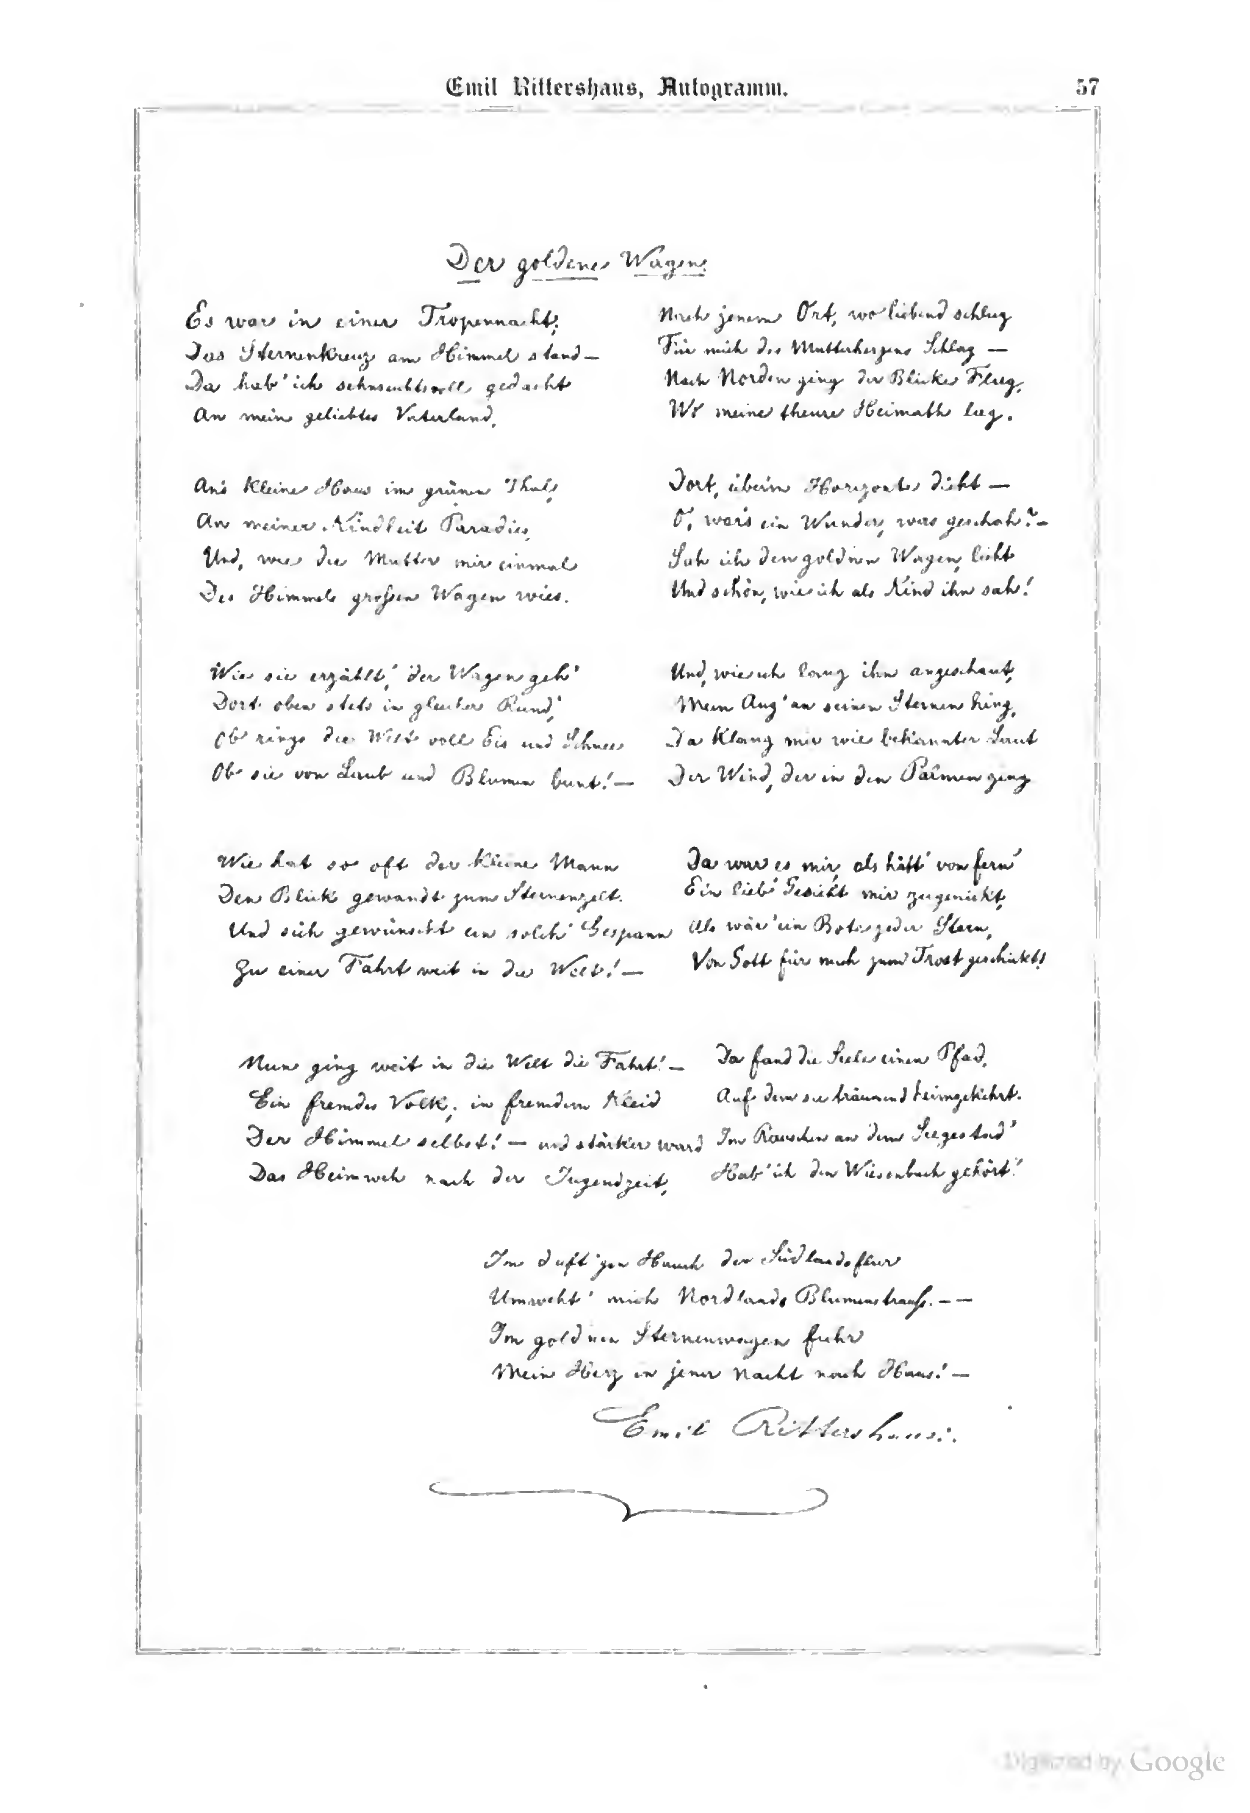 Emil Rittershaus, Autogramm.
57
Der goldene Wagen.
Es war in einer Tropennacht;
Das Sternenkreuz am Himmel stand —
Da hab' ich sehnsuchtsvoll gedacht
An mein geliebtes Vaterland,
An's kleine Haus im grünen Thal,
An meiner Kindheit Paradies,
Und, wie die Mutter mir einmal
Des Himmels großen Wagen wies.
Wie sie erzählt', der Wagen geh'
Dort oben stets in gleicher Rund',
Ob rings die Welt voll Eis und Schnee
Ob sie von Laub und Blumen bunt! —
Wie hat so oft der kleine Mann
Den Blick gewandt zum Sternenzelt.
Und sich gewünscht ein solch' Gespann
Zu einer Fahrt weit in die Welt! —
Nun ging weit in die Welt die Fahrt! —
Ein fremdes Volk, in fremdem Kleid
Der Himmel selbst! — und stärker ward
Das Heimweh nach der Jugendzeit,
Nach jenem Ort, wo liebend schlug
Für mich des Mutterherzens Schlag —
Nach Norden ging der Blicke Flug,
Wo meine theure Heimath lag.
Dort, über'm Horizonte dicht —
O, war's ein Wunder, was geschah? —
Sah ich den goldnen Wagen, licht
Und schön, wie ich als Kind ihn sah!
Und, wie ich lang ihn angeschaut,
Mein Aug' an seinen Sternen hing,
Da klang mir wie bekannter Laut
Der Wind, der in den Palmen ging
Da war es mir, als hätt' von fern'
Ein lieb' Gesicht mir zugenickt,
Als wär' ein Bote jeder Stern,
Von Gott für mich zum Trost geschickt!
Da fand die Seele einen Pfad,
Auf dem sie träumend heimgekehrt.
Im Rauschen an dem Seegestad'
Hab' ich den Wiesenbach gehört!
Im duft'gen Hauch der Südlandsflur
Umweht' mich Nordlands Blumenstrauß. — —
Im goldnen Sternenwagen fuhr
Mein Herz in jener Nacht nach Haus! —
Emil Rittershaus.
Digitized by Google